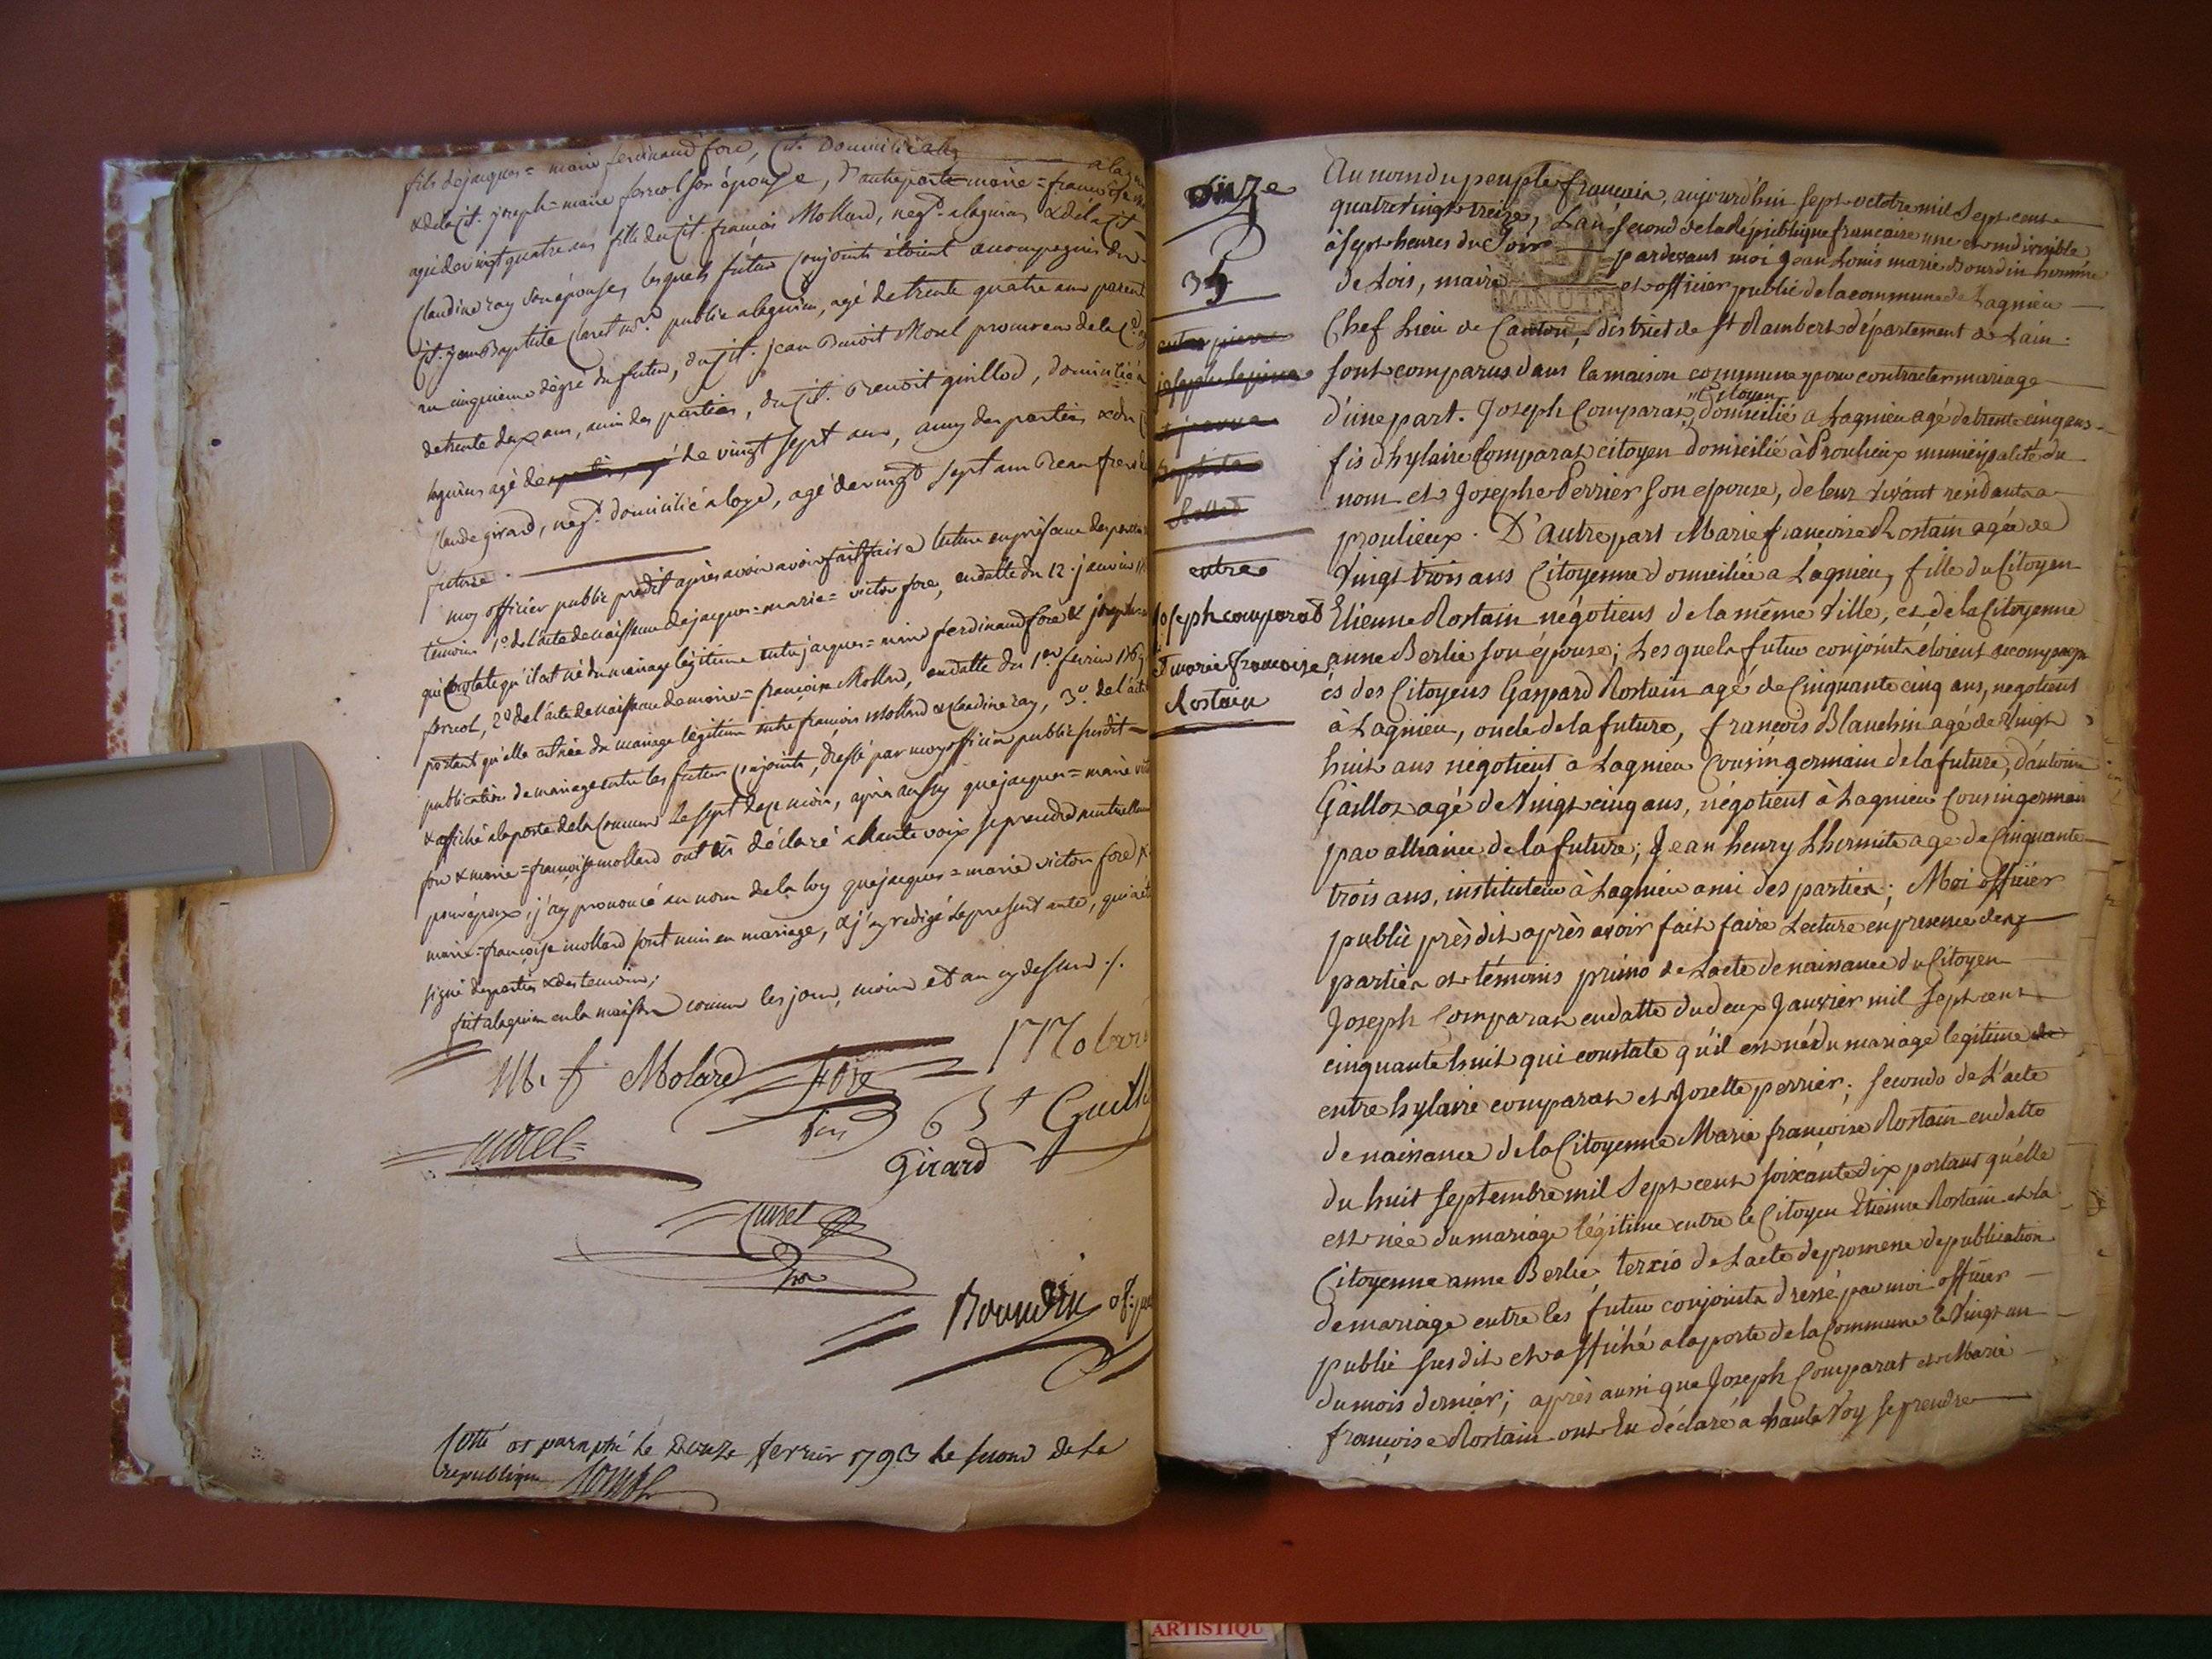 fils de jacques = marie ferdinand fore, Cit. Domicilié
& de la Cit. joseph = marie ferreol son épouse, d'autre parte marie = françoise
agé de vingt quatre ans fille du Cit. françois Mollard, neg.t a lagnieu & de la Cit
Claudine ray son épouse, lesquels futurs Conjoints étoient accompagnés du
Cit. jean Baptiste Claret public a lagnieu, agé de trente quatre ans parent
au cinquieme dégré du futur, du Cit. jean Benoit Morel procureur de la
de trente deux ans, ami des parties, du Cit. Benoit guillod, domicilié a
lagnieu agé de vingt sept ans, amy des parties & du
Claude girard, neg.t domicilié a loye, agé de vingt sept ans Beau frere
future
moy officier public predit après avoir avoir fait faire lecture en présence des parties
temoins 1.o de l'acte de naissance de jacques = marie = victor fore, en datte du 12 janvier
qui Constate qu'il est né du mariage légitime entre jacques = marie ferdinand fore & joseph
ferreol, 2.o de l'acte de naissance de marie = françoise Mollard, en datte du 1.er fevrier
portant qu'elle est née du mariage légitime entre françois Mollard & Claudine ray, 3.o de l'acte
publication de mariage entre les futurs Conjoints, dressé par moy officier public susdit =
& affiché a la porte de la Commune Le sept de ce mois, après aussy que jacques = marie
fore & marie = françoise mollard ont déclaré a haute voix se prendre mutuellement
pour époux, j'ay prononcé au nom de la loy que jacques = marie victor fore &
marie = françoise mollard sont unis en mariage, & j'ay redigé le present acte, que
signé des parties & des temoins;
fait a lagnieu en la maison commune les jour, mois et an cy dessus ./.
M. f Molard fore
Morel
Girard
Claret
Bourdin of. pu
Cotté et paraphé le Douze ferrier 1793 le second de la
republique
onze
entre pierre
joseph
entre
Joseph comparat
& marie françoise
Rostain
Au nom du peuple français, aujourd'hui sept octobre mil sept cent
quatre vingt treize, L'an second de la république française une et indivisible,
à sept heures du Soir pardevant moi Jean Louis marie Bourdin homme
de Lois, maire et officier public de la commune de Lagnieu
MINUTE
Chef Lieu de Canton, district de St Rambert département de Lain.
sont comparus dans la maison commune pour contracter mariage
Citoyen
d'une part. Joseph Comparat, domicilié a Lagnieu agé de trente cinq ans
fis d'hylaire Comparat citoyen domicilié à Proulieux municipalité du
nom et Josephe Perrier son epouse, de leur vivant résidants a
proulieux. D'autre part Marie françoise Rostain agée de
Vingt trois ans Citoyenne domiciliée a Lagnieu, fille du Citoyen
Etienne Rostain négotiens de la même Ville, et de la Citoyenne
anne Berlie son épouse; Lesquels futurs conjoints étoient accompagn
és des Citoyens Gaspard Rostain agé de Cinquante cinq ans, negotient
à Lagnieu, oncle de la future, françois Blanchin agé de Vingt
huit ans négotient a Lagnieu Cousin germain de la future, d'antoine
Gaillot agé de Vingt cinq ans, négotient à Lagnieu Cousin germain
par alliance de la future; Jean henry Lhermite agé de Cinquante
trois ans, instituteur à Lagnieu ami des parties; Moi officier
public prèsdit après avoir fait faire Lecture en presence des
parties et témoins primo de L'acte de naissance du Citoyen
Joseph Comparat en datte du deux Janvier mil sept cent
cinquante huit qui constate qu'il est né du mariage legitime de
entre hylaire comparat et Josette perrier; secondo de L'acte
de naissance de la Citoyenne Marie françoise Rostain en datte
du huit septembre mil Sept cent soixante dix portant qu'elle
est née du mariage légitime entre le Citoyen Etienne Rostain et la
Citoyenne anne Berlie, terxio de L'acte de promesse de publication
de mariage entre les futurs conjoints dressé par moi officier
public susdit et affiché a la porte de la Commune le Vingt un
du mois dernier; après aussi que Joseph Comparat et Marie
françoise Rostain ont Eu déclaré a haute Voy se prendre
ARTISTIQU